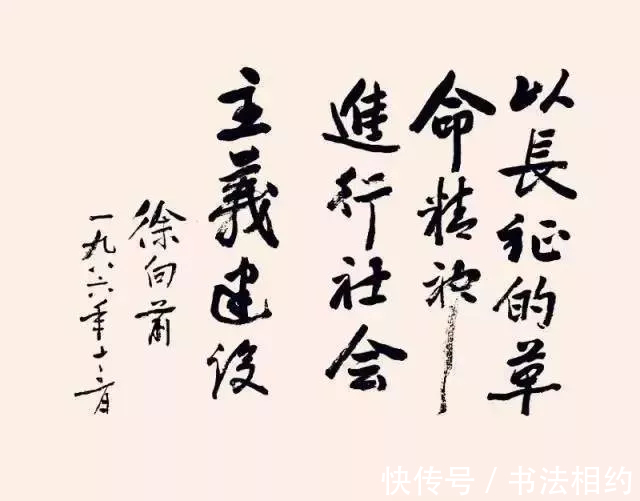 以長征的革
命精神
進行社会
主義建设
徐向前
一九八六年十二月
快传号 / 书法相约